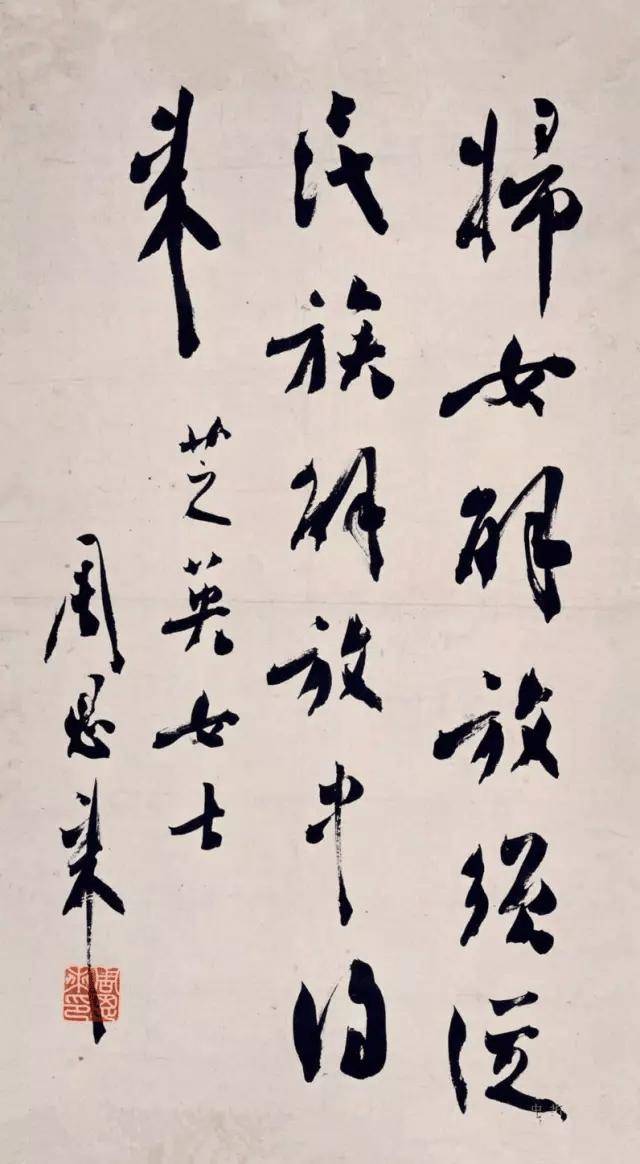 婦女解放須從
民族解放中得
來 芝英女士
周恩來
周恩來印